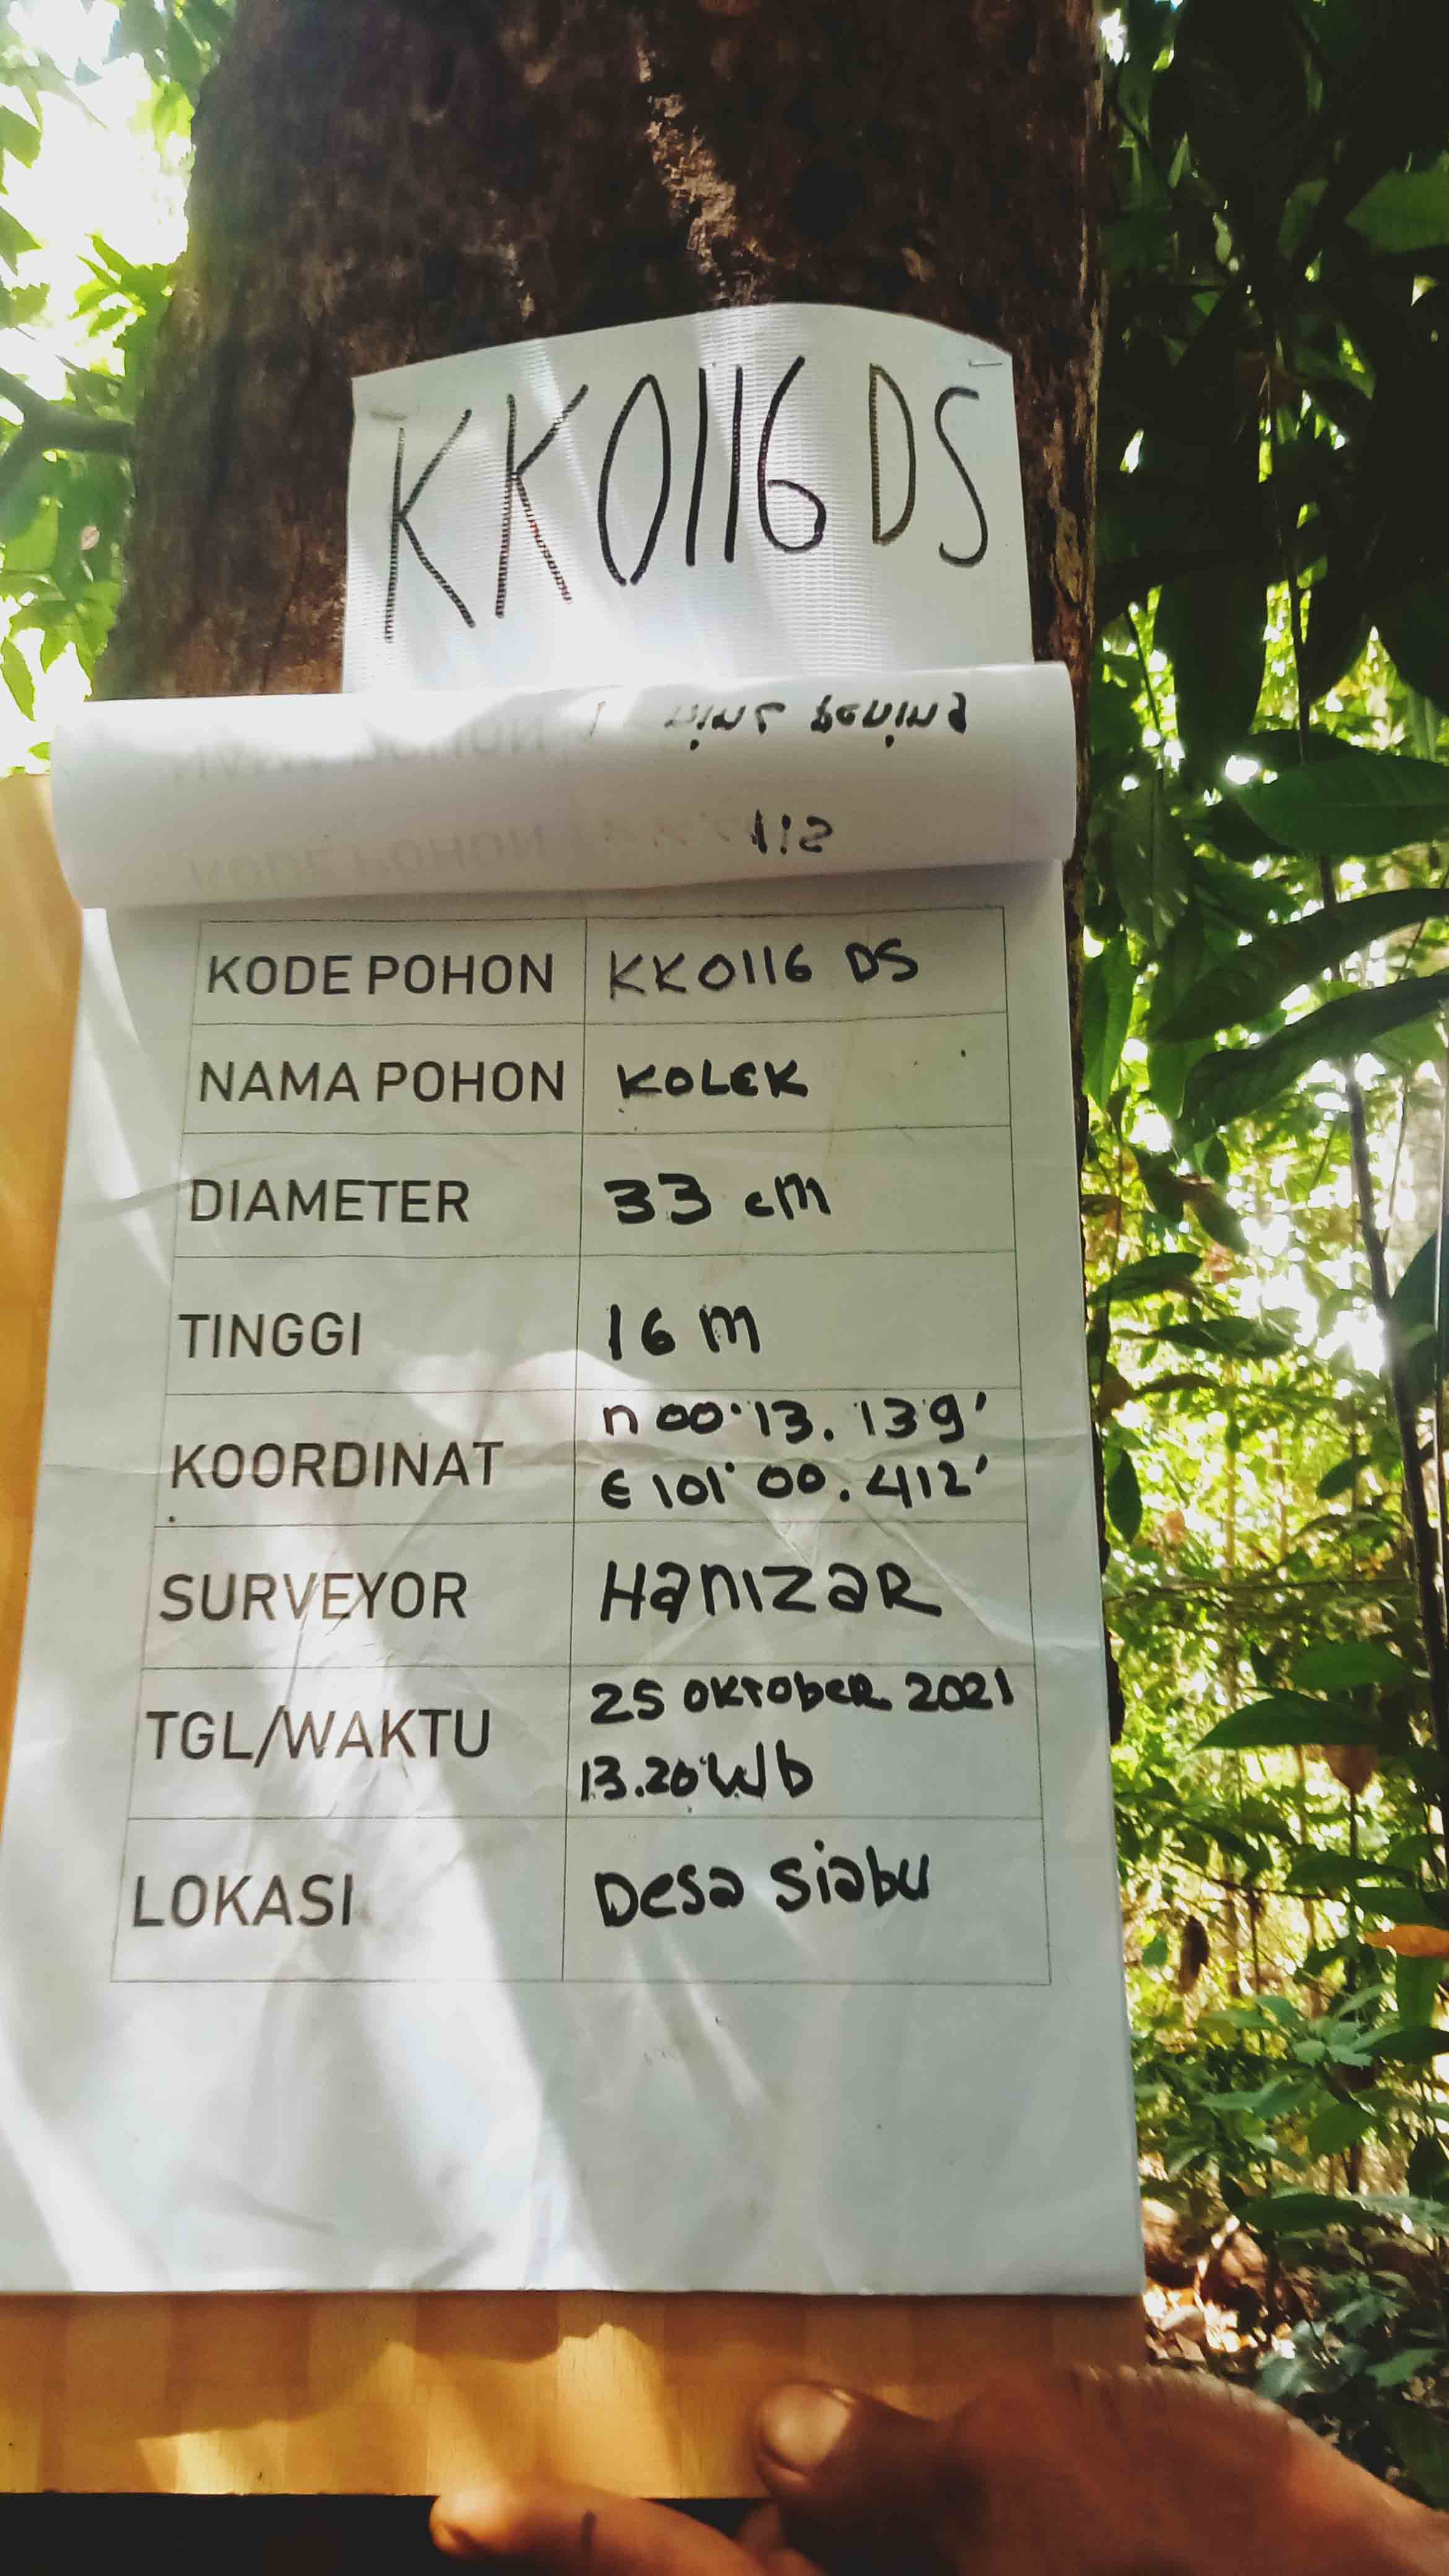 KK0116 DS
KODE POHON KK0116 DS
NAMA POHON KOLEK
DIAMETER 33 cm
TINGGI 16 m
KOORDINAT n 00° 13. 139'
E 101° 00. 412'
SURVEYOR HanizaR
TGL/WAKTU 25 OKTOBER 2021
13.20 Wib
LOKASI Desa Siabu